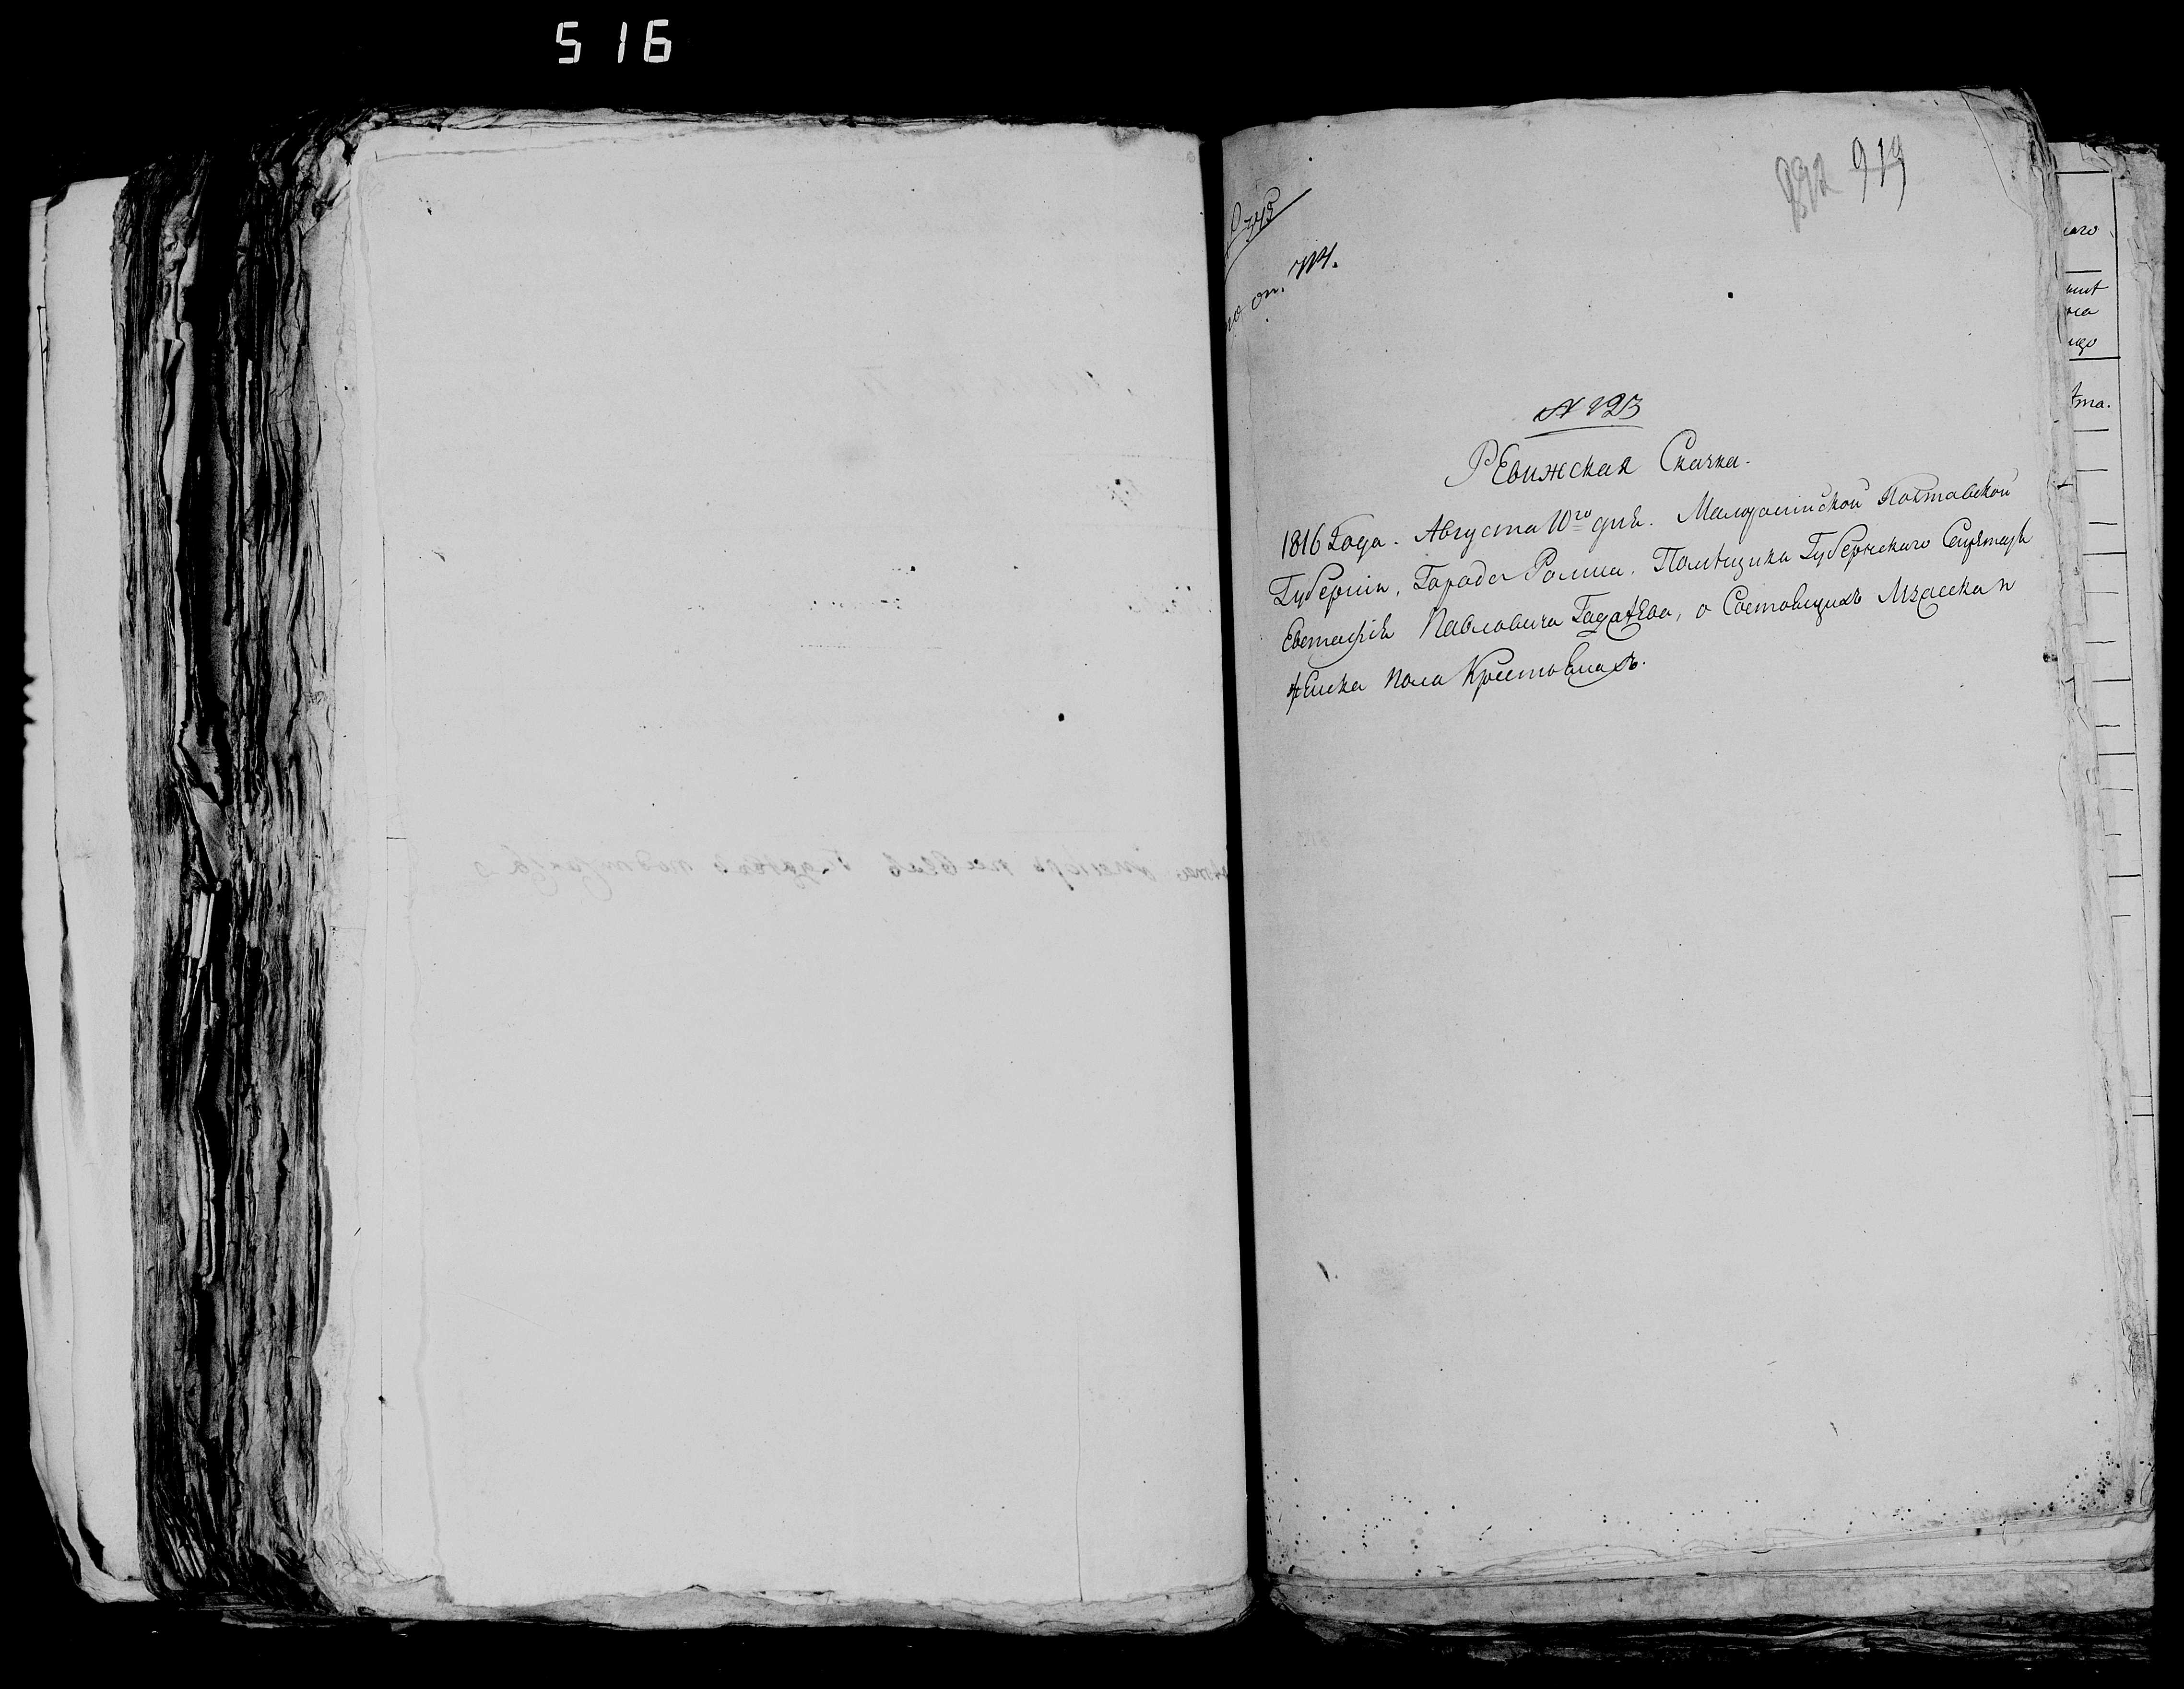 516
892 919
по оп. 714.
N 123
РЕвижская Сказка.
1816 Года. Августа 10го дня. Малороссийской Полтавской
Губернии, Города Ромна, Помѣщика Губернскаго Секретаря
Евстафія Павловича, о Состоящихъ Мужеска и
жЕнска пола Крестьянахъ.